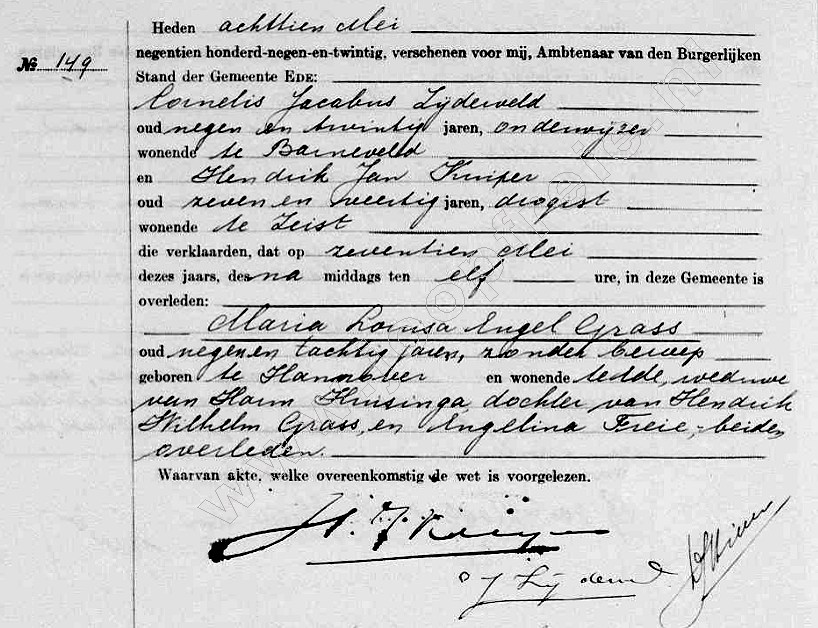 Heden achttien Mei
negentien honderd-negen-en-twintig, verschenen voor mij, Ambtenaar van den Burgerlijken
№ 149
Stand der Gemeente EDE:
Cornelis Jacobus Zijderveld
oud negen en twintig jaren, onderwijzer
wonende te Barneveld
en Hendrik Jan Kuiper
oud zeven en veertig jaren, drogist
wonende te Zeist
die verklaarden, dat op zeventien Mei
dezes jaars, des na middags ten elf ure, in deze Gemeente is
overleden:
Maria Louisa Engel Grass
oud negen en tachtig jaren, zonder beroep
geboren te Hannover en wonende te Ede, weduwe
van Harm Kruisinga, dochter van Hendrik
Wilhelm Grass, en Engelina Freie, beiden
overleden.
Waarvan akte, welke overeenkomstig de wet is voorgelezen.